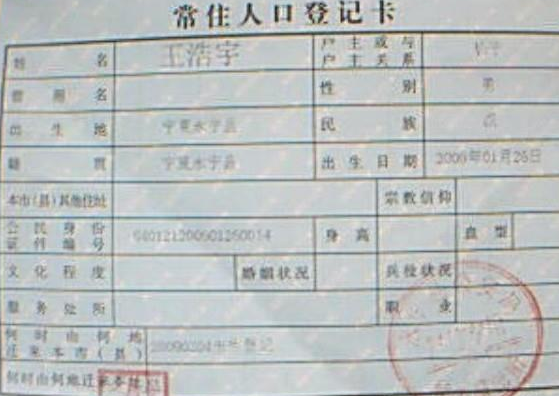 常住人口登记卡
姓名 王浩宇 户主或与户主关系
曾用名 性别 男
出生地 宁夏永宁县 民族 汉
籍贯 宁夏永宁县 出生日期 2006年01月26日
本市(县)其他住址 宗教信仰
公民身份证件编号 身高 血型
文化程度 婚姻状况 兵役状况
服务处所 职业
何时由何地迁来本市(县) 20090204 登记
何时由何地迁来本址